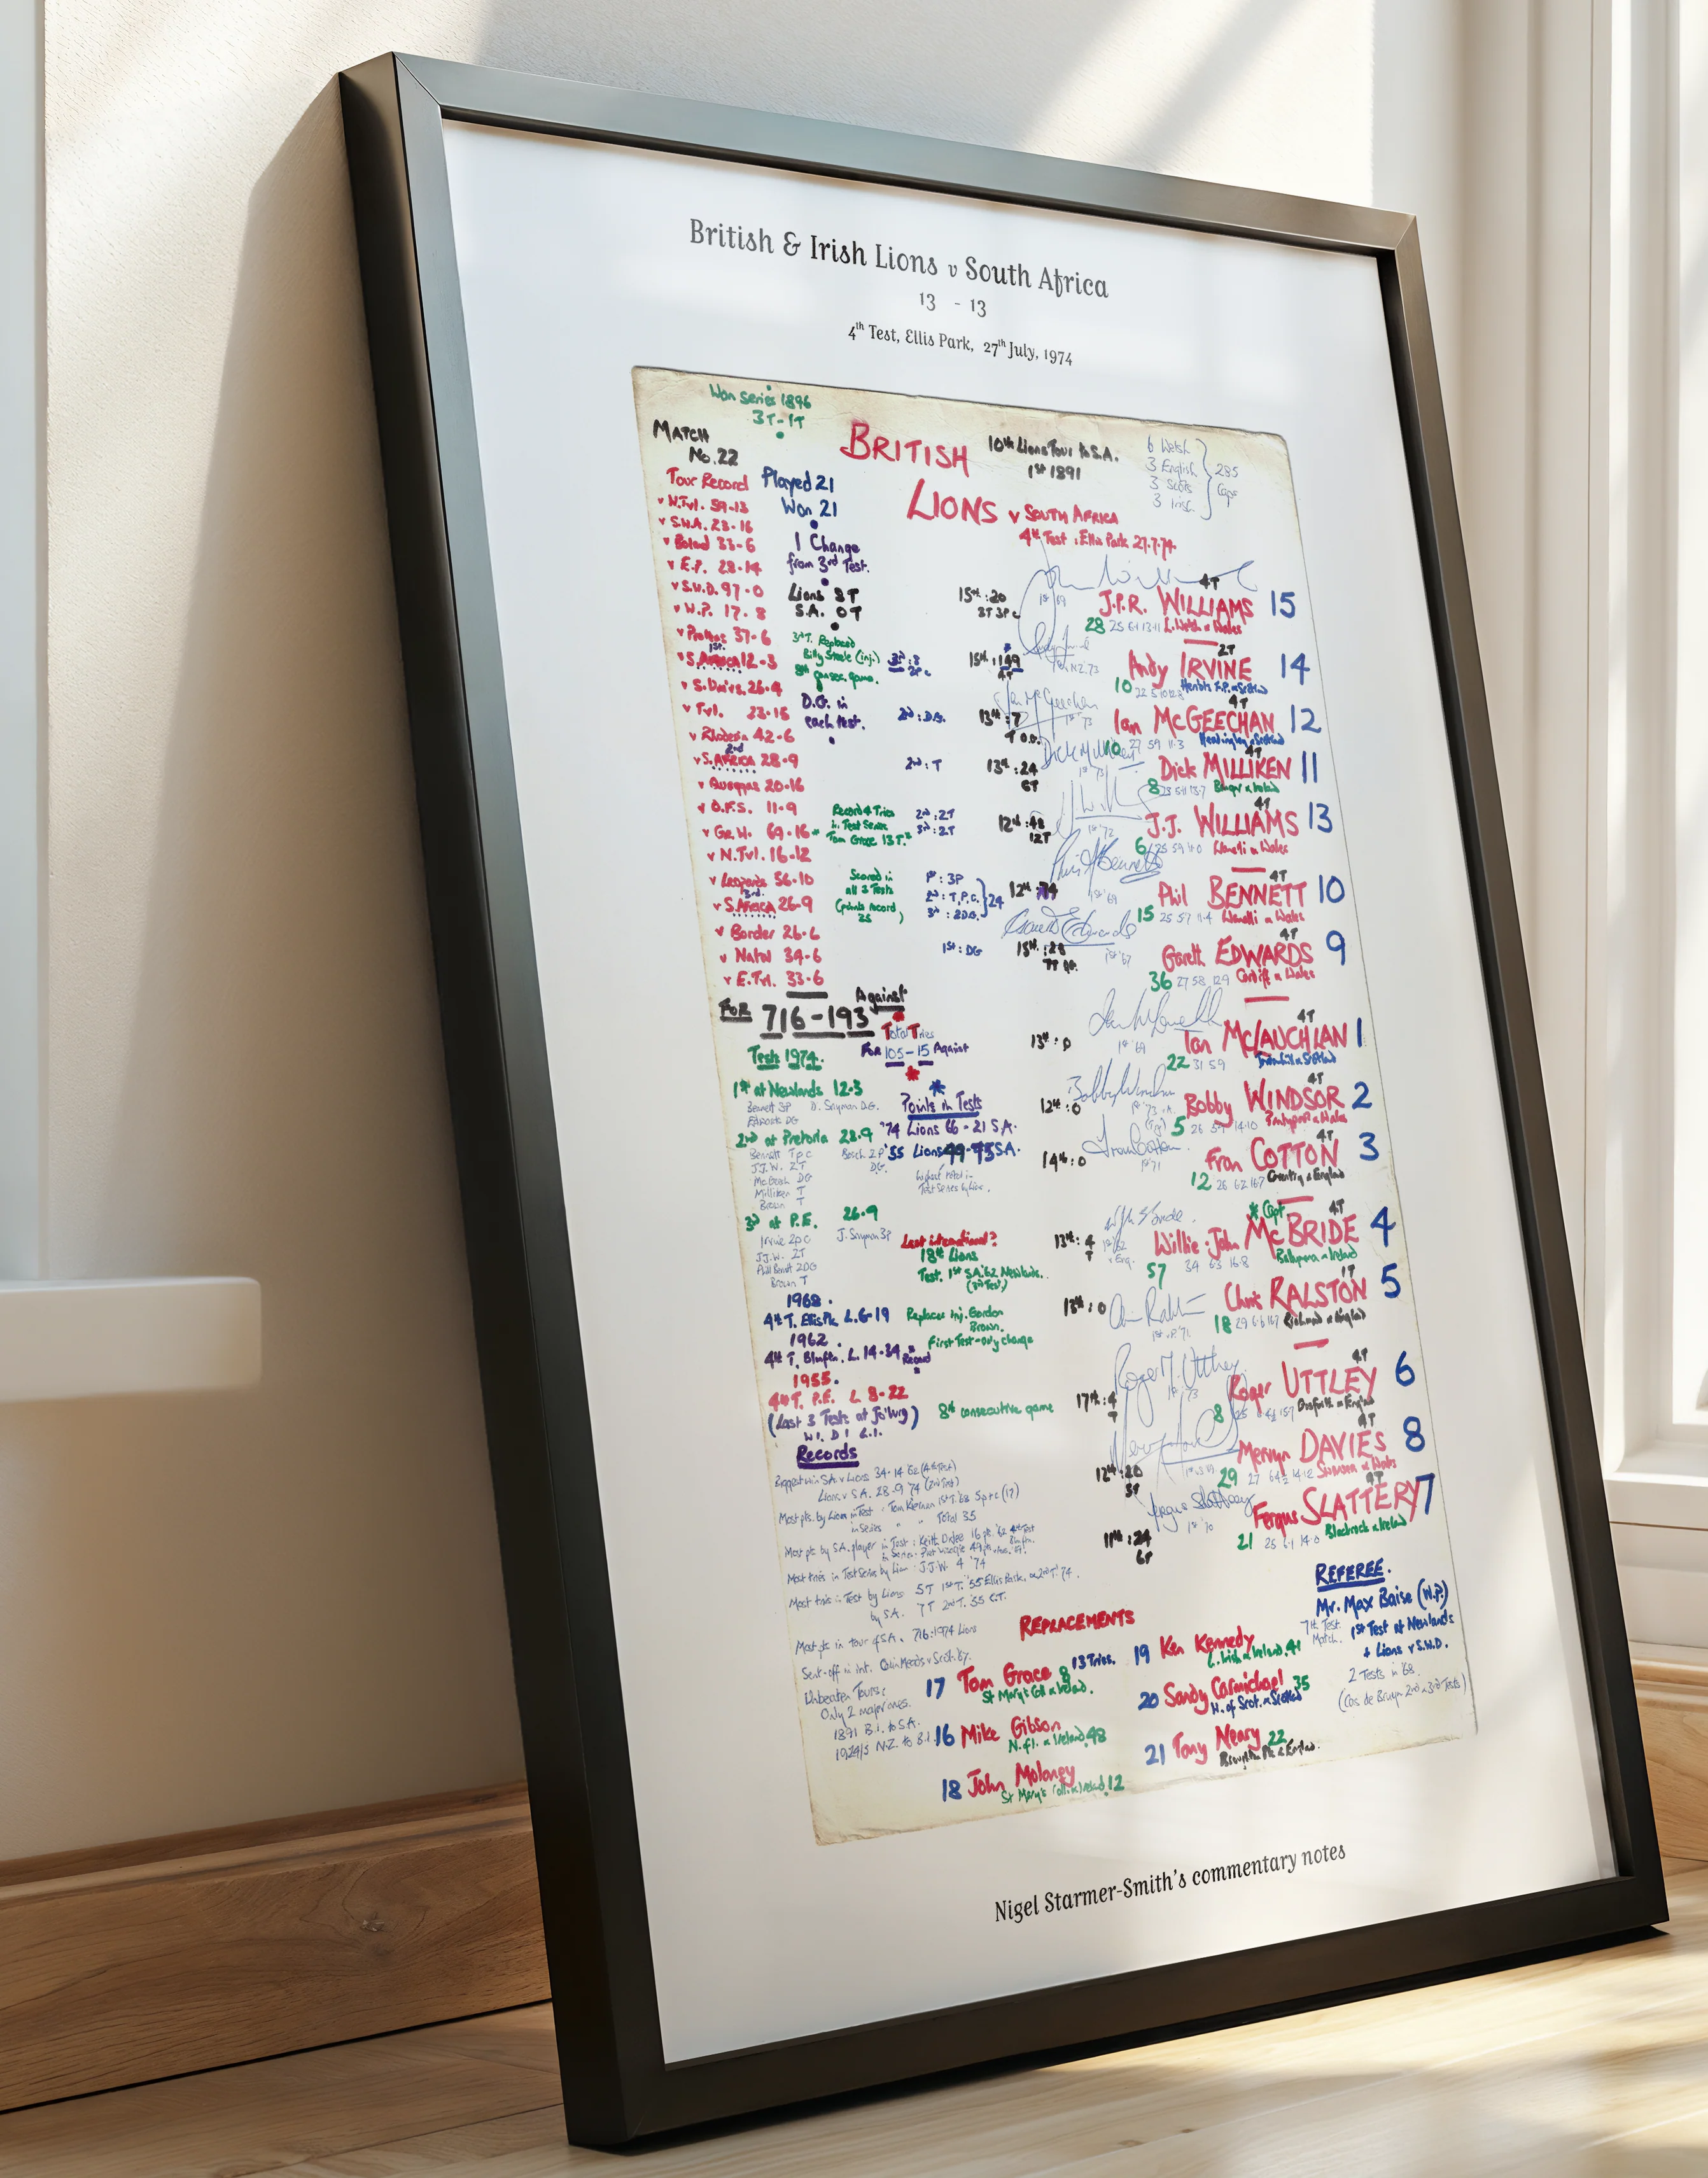 British & Irish Lions v South Africa
13 - 13
4th Test, Ellis Park, 27th July, 1974
Won series 1896
3T-1T
MATCH
No. 22
BRITISH
LIONS v SOUTH AFRICA
4th Test : Ellis Park 27.7.74
10th Lions Tour to S.A.
1st 1891
6 Welsh
3 English
3 Scots
3 Irish
285
Caps
Tour Record
Played 21
Won 21
v S.W.A. 23-16
v Boland 33-6
v E.P. 28-14
v S.W.D. 97-0
v W.P. 17-8
v Proteas 37-6
1st
v S. AFRICA 12-3
v S. Univs. 26-4
v Tvl. 23-15
v Rhodesia 42-6
2nd
v S. AFRICA 28-9
v Quaggas 20-16
v O.F.S. 11-9
v Gr.W. 69-16
v N.Tvl. 16-12
v Leopards 56-10
3rd
v S. AFRICA 26-9
v Border 26-6
v Natal 34-6
v E.Tvl. 33-6
FOR 716-193 Against
1 Change
from 3rd Test.
Lions 8T
S.A. 0T
3rd T. Replaced
Billy Steele (inj.)
8th consec. game.
D.G. in
each test.
Record 4 Tries
in Test Series
Tom Grace 13T.
Scored in
all 3 Tests
(points record
25)
2nd : D.G.
2nd : T
2nd : 2T
3rd : 2T
1st : 3P
2nd : T.P.C.
3rd : 2D.G.
24
1st : DG
15th : 20
4T
J.P.R. WILLIAMS 15
28 L. Welsh & Wales
2T
Andy IRVINE 14
10 Heriots F.P. & Scotland
13th : 7
4T
Ian McGEECHAN 12
10 Headingley & Scotland
13th : 24
6T
4T
Dick MILLIKEN 11
8 Bangor & Ireland
12th : 48
12T
4T
J.J. WILLIAMS 13
6 Llanelli & Wales
12th
4T
Phil BENNETT 10
15 25 57 11-4 Llanelli & Wales
15th : 28
4T
Gareth EDWARDS 9
36 27 58 12.9 Cardiff & Wales
13th : 0
4T
Ian McLAUCHLAN 1
22 31 59 Jordanhill & Scotland
12th : 0
4T
Bobby WINDSOR 2
5 Pontypool & Wales
14th : 0
4T
Fran COTTON 3
12 26 6.2 16.7 Coventry & England
* Capt
13th : 4
T
4T
Willie-John McBRIDE 4
57 34 6.3 16.8 Ballymena & Ireland
13th : 0
1T
Chris RALSTON 5
18 29 6.6 16.7 Richmond & England
17th : 4
T
4T
Roger UTTLEY 6
8 Gosforth & England
12th : 20
4T
Mervyn DAVIES 8
29 Swansea & Wales
11th : 24
6T
4T
Fergus SLATTERY 7
21 Blackrock & Ireland
Total Tries
For 105-15 Against
Tests 1974.
1st at Newlands 12-3
Bennett 3P D. Snyman D.G.
Edwards DG
2nd at Pretoria 28-9
Bennett T p c Bosch 2P
J.J.W. 2T DG.
McGeech DG
Milliken T
Brown T
3rd at P.E. 26-9
Irvine 2pc J. Snyman 3P
J.J.W. 2T
Phil Bennett 2DG
Brown T
Points in Tests
'74 Lions 66 - 21 S.A.
'55 Lions 49-75 S.A.
highest total in
Test Series by Lions.
Last international?
18th Lions
Test. 1st S.A.'62 Newlands.
(3rd Test)
1968.
4th T. Ellis Pk. L. 6-19
1962.
4th T. Blmftn. L. 14-34 Record
1955.
4th T. P.E. L 8-22
(Last 3 Tests at Jo'burg)
W1. D1 L1.
Replaces inj. Gordon
Brown.
First Test - only change
8th consecutive game
Records
Biggest win S.A. v Lions 34-14 '62 (4th Test)
Lions v S.A. 28-9 74 (2nd Test)
Most pts. by Lion in Test : Tom Kiernan 1st T. '68 5p + c (17)
in Series " " Total 35
Most pts by S.A. player in Test : Keith Oxlee 16 pts. '62 4th Test
Most tries in Test Series by Lion : J.J.W. 4 '74
Most tries in Test by Lions 5T 1st T. '55 Ellis Park, & 2nd T. '74.
by S.A. 7T 2nd T. '55 C.T.
Most pts in tour of S.A. 716 : 1974 Lions
Sent-off in int. Colin Meads v Scotl. '67.
Unbeaten Tours:
Only 2 major ones.
1891 B.I. to S.A.
1924/5 N.Z. to B.I.
REPLACEMENTS
17 Tom Grace 8 13 Tries.
St Mary's Coll & Ireland.
16 Mike Gibson
N.F.I. & Ireland 48
18 John Moloney
St Mary's Coll. & Ireland 12
19 Ken Kennedy
L. Irish & Ireland 41
20 Sandy Carmichael 35
W. of Scot. & Scotland
21 Tony Neary 22
Broughton Pk & England.
REFEREE.
Mr. Max Baise (W.P.)
7th Test
Match.
1st Test at Newlands
+ Lions v S.W.D.
2 Tests in '68.
(Cas de Bruyn 2nd & 3rd Tests)
Nigel Starmer-Smith's commentary notes